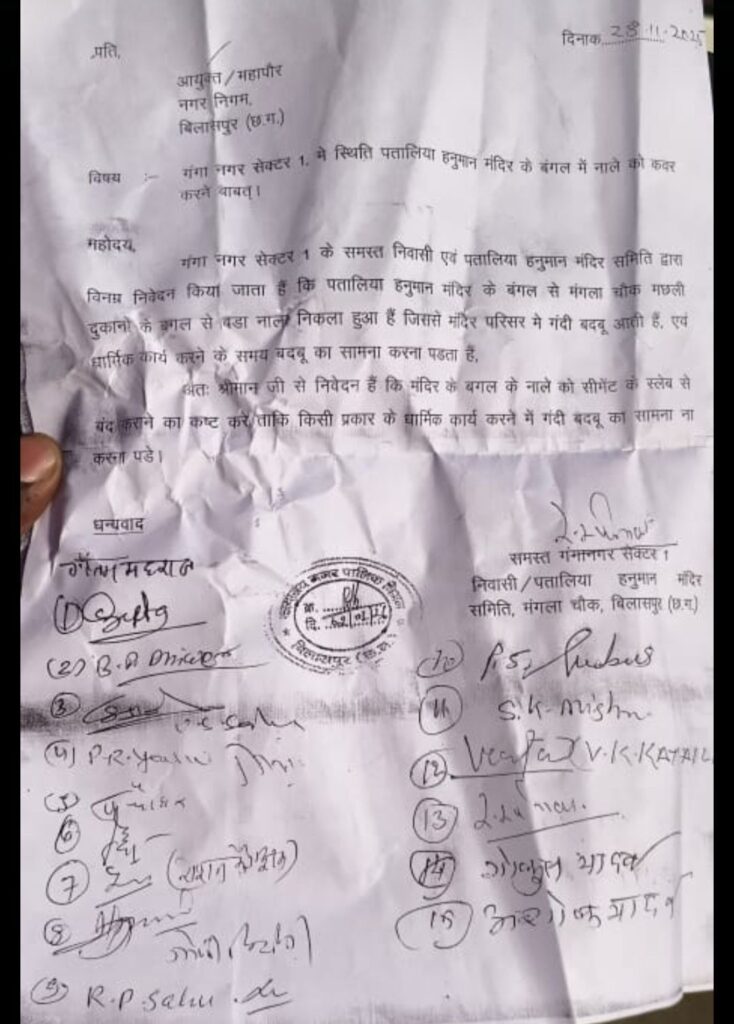 दिनाक 28.11.2025
प्रति,
आयुक्त/महापौर
नगर निगम,
बिलासपुर (छ.ग.)
विषय :- गंगा नगर सेक्टर 1, मे स्थिति पतालिया हनुमान मंदिर के बंगल में नाले को कवर
करने बाबत्।
महोदय,
गंगा नगर सेक्टर 1 के समस्त निवासी एवं पतालिया हनुमान मंदिर समिति द्वारा
विनम्र निवेदन किया जाता हैं कि पतालिया हनुमान मंदिर के बंगल से मंगला चौक मछली
दुकानो के बगल से बडा नाला निकला हुआ हैं जिससे मंदिर परिसर मे गंदी बदबू आती हैं, एवं
धार्मिक कार्य करने के समय बदबू का सामना करना पडता हैं,
अतः श्रीमान जी से निवेदन हैं कि मंदिर के बगल के नाले को सीमेंट के स्लेब से
बंद कराने का कष्ट करें ताकि किसी प्रकार के धार्मिक कार्य करने में गंदी बदबू का सामना ना
करना पडे।
धन्यवाद
समस्त गंगानगर सेक्टर 1
निवासी/पतालिया हनुमान मंदिर
समिति, मंगला चौक, बिलासपुर (छ.ग.)
कार्यालय नगर पालिक निगम
क्र.
दि.
बिलासपुर (छ.ग.)
(1) Gupta
(2) B.D
(3)
(4) P.R.
(5)
(6)
(7)
(8)
(9) R.P. Sahu
(10) P.S.
(11) S.K. Mishra
(12) V.K.
(13)
(14) गोकुल यादव
(15) अशोक यादव